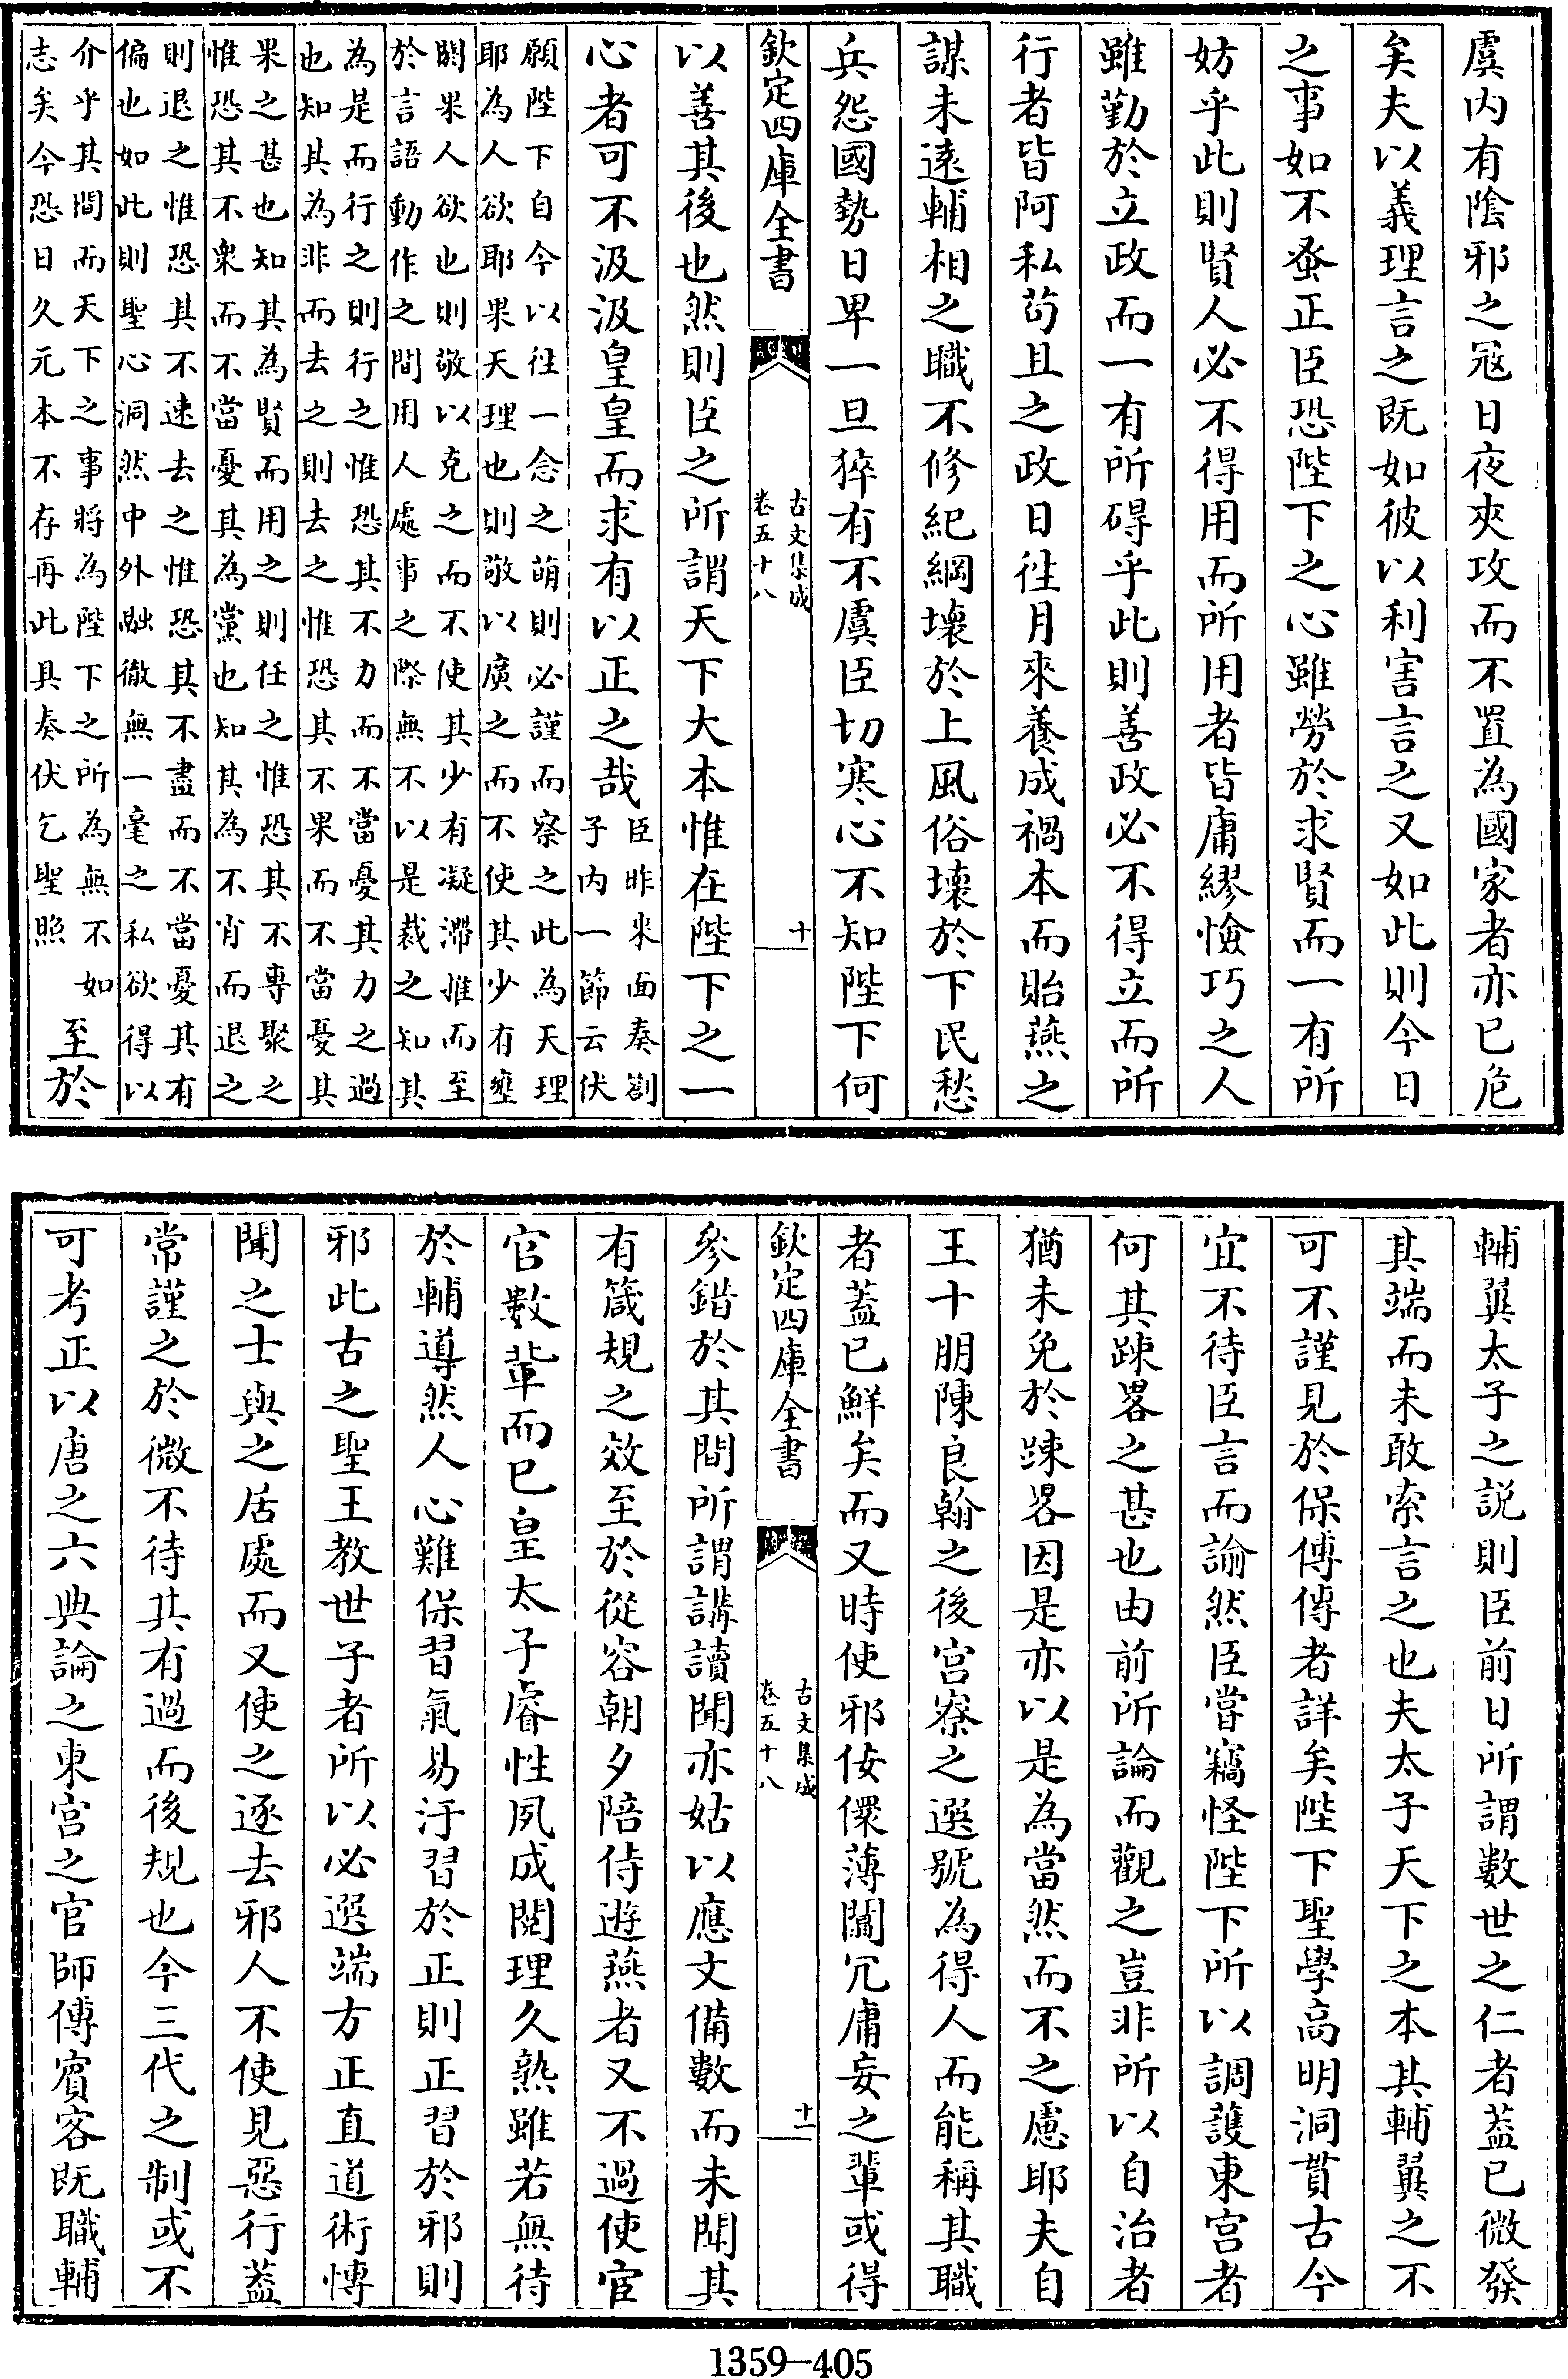 虞内有隂邪之冦日夜夾攻而不置為國家者亦已危
矣夫以義理言之既如彼以利害言之又如此則今日
之事如不蚤正臣恐陛下之心雖勞於求賢而一有所
妨乎此則賢人必不得用而所用者皆庸繆憸巧之人
雖勤於立政而一有所碍乎此則善政必不得立而所
行者皆阿私苟且之政日往月來養成禍本而貽燕之
謀未逺輔相之職不修紀綱壊於上風俗壊於下民愁
兵怨國勢日卑一旦猝有不虞臣切寒心不知陛下何
欽定四庫全書
古文集成
卷五十八
十
以善其後也然則臣之所謂天下大本惟在陛下之一
心者可不汲汲皇皇而求有以正之哉
臣昨來面奏劄
子内一節云伏
願陛下自今以往一念之萌則必謹而察之此為天理
耶為人欲耶果天理也則敬以廣之而不使其少有壅
閼果人欲也則敬以克之而不使其少有凝滯推而至
於言語動作之間用人處事之際無不以是裁之知其
為是而行之則行之惟恐其不力而不當憂其力之過
也知其為非而去之則去之惟恐其不果而不當憂其
果之甚也知其為賢而用之則任之惟恐其不專聚之
惟恐其不衆而不當憂其為黨也知其為不肖而退之
則退之惟恐其不速去之惟恐其不盡而不當憂其有
偏也如此則聖心洞然中外融徹無一毫之私欲得以
介乎其間而天下之事將為陛下之所為無不如
志矣今恐日久元本不存再此具奏伏乞聖照
至於
輔翼太子之説則臣前日所謂數世之仁者葢已微發
其端而未敢索言之也夫太子天下之本其輔翼之不
可不謹見於保傅傳者詳矣陛下聖學高明洞貫古今
宜不待臣言而諭然臣嘗竊怪陛下所以調護東宫者
何其踈畧之甚也由前所論而觀之豈非所以自治者
猶未免於踈畧因是亦以是為當然而不之慮耶夫自
王十朋陳良翰之後宫寮之選號為得人而能稱其職
者葢已鮮矣而又時使邪佞儇薄闒冗庸妄之輩或得
欽定四庫全書
古文集成
卷五十八
十一
參錯於其間所謂講讀聞亦姑以應文備數而未聞其
有箴規之效至於從容朝夕陪侍遊燕者又不過使宦
官數輩而已皇太子睿性夙成閱理久熟雖若無待
於輔導然人心難保習氣易汙習於正則正習於邪則
邪此古之聖王教世子者所以必選端方正直道術慱
聞之士與之居處而又使之逐去邪人不使見惡行葢
常謹之於微不待其有過而後規也今三代之制或不
可考正以唐之六典論之東宫之官師傅賓客既職輔
1359—405